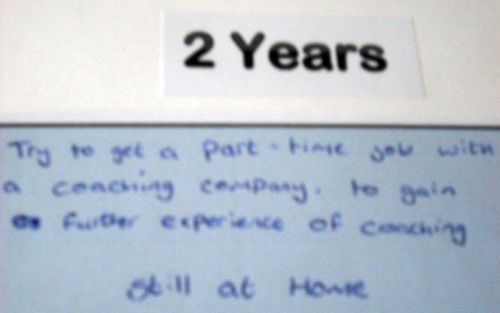 2 Years
Try to get a part-time job with
a coaching company. to gain
further experience of coaching
still at Home